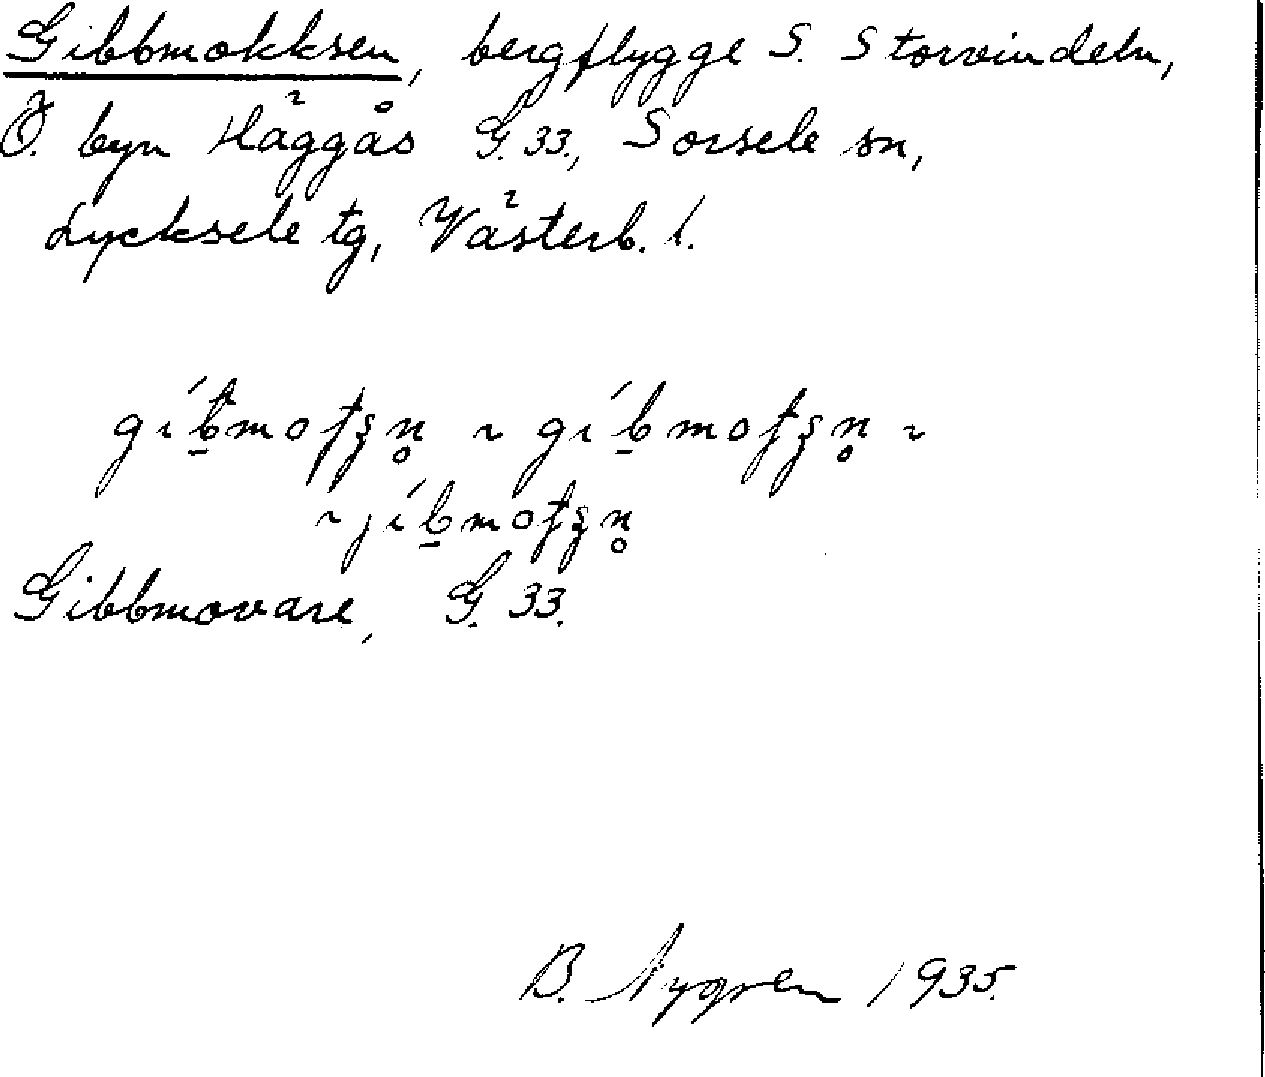 Gibbmokksen, bergflygge S. Storvindeln,
Ö. byn Häggås G. 33., Sorsele sn,
Lycksele tg, Västerb. l.
Gibbmovare, G. 33.
B. Nygren 1935.